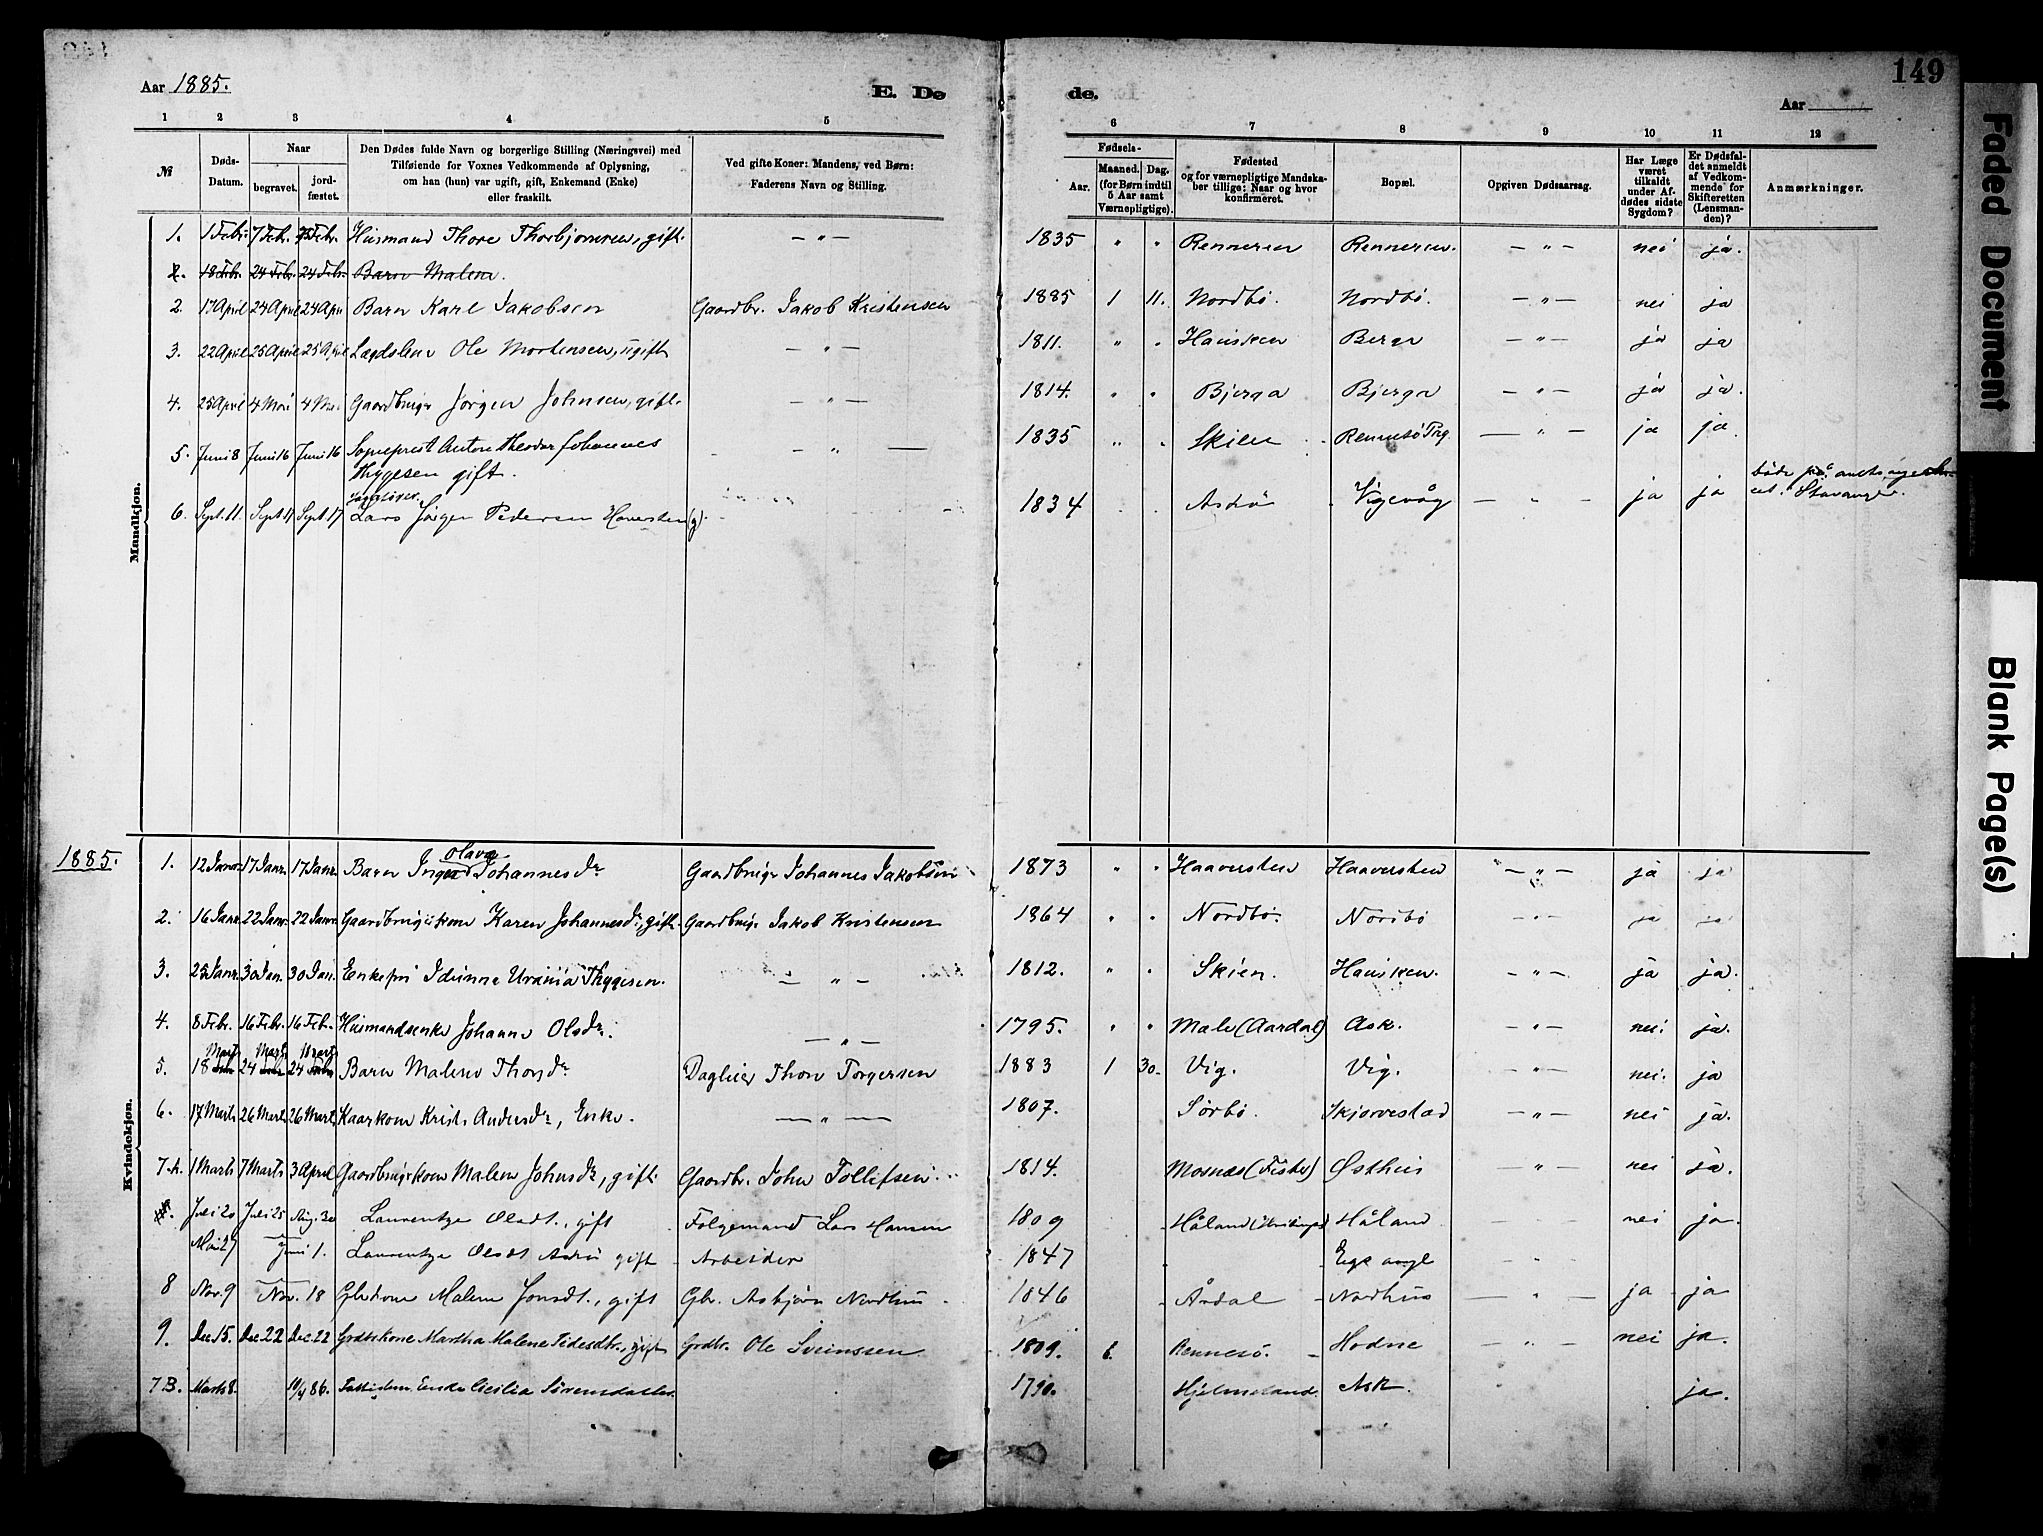 Aar 1885.
E. Dø
de.
149
Aar
1 2 3 4 5
6 7 8 9 10 11 12
№
Døds-
Datum.
Naar
begravet.
jord-
fæstet.
Den Dødes fulde Navn og borgerlige Stilling (Næringsvei) med
Tilføiende for Voxnes Vedkommende af Oplysning,
om han (hun) var ugift, gift, Enkemand (Enke)
eller fraskilt.
Ved gifte Koner: Mandens, ved Børn:
Faderens Navn og Stilling.
Fødsels-
Aar.
Maaned.
Dag.
(for Børn indtil
5 Aar samt
Værnepligtige).
Fødested
og for værnepligtige Mandska-
ber tillige: Naar og hvor
konfirmeret.
Bopæl.
Opgiven Dødsaarsag.
Har Læge
været
tilkaldt
under Af-
dødes sidste
Sygdom?
Er Dødsfal-
det anmeldt
af Vedkom-
mende for
Skifteretten
(Lensman-
den)?
Anmærkninger.
Mandkjøn.
1. 1 Febr. 7 Febr. Febr. Husmand Thore Thorbjørnsen, gift. — " — 1835 " " Rennesen Rennesen. — " — nei ja.
2. 18 Feb. 24 Feb. 24 Feb. Barn Malene.
2. 17 April 24 April 24 April Barn Karl Jakobsen Gaardbr. Jakob Kristensen 1885 1 11. Nordbö. Nordbö. — " — nei ja
3. 22 April 25 April 25 April Lægdslem Ole Mortensen, ugift — " — 1811. " " Hausken Berge — " — ja ja
4. 25 April 4 Mai 4 Mai Gaardbruger Jørgen Johnsen, gift. — " — 1814. " " Bjerga Bjerga — " — ja ja.
5. Juni 8 Juni 16 Juni 16 Sogneprest Anton Theodor Johannes
Thygesen gift. — " — 1835 " " Skien Rennesö Prg. — " — ja ja.
6. Sept. 11. Sept. 17 Sept. 17 Lars Jörgen Pedersen Haversten (g). 1834 Askö Vigevåg — " — ja ja
døde på
Stavanger.
1885.
Kvindekjøn.
1. 12 Janr. 17 Janr. 17 Janr. Barn Inger Olava Johannesdr. Gaardbruger Johannes Jakobsen 1873 " " Haaversten Haaversten — " — ja ja
2. 16 Janr. 22 Janr. 22 Janr. Gaardbrugerkone Karen Johannesdr., gift. Gaardbruger Jakob Kristensen 1864 " " Nordbö. Nordbö — " — ja ja
3. 25 Janr. 30 Jan. 30 Jan. Enkefru Idunna Urania Thygesen. — " — 1812. " " Skien. Hausken. — " — ja ja.
4. 8 Febr. 16 Febr. 16 Feb. Husmandsenke Johanne Olsdr. — " — 1795. " " Male (Aardal) Ask. — " — nei ja.
5. 18 Marts 24 Marts 24 Marts Barn Malene Thorsdr. Daglejer Thore Torgersen 1883 1 30. Vig. Vig. — " — nei. ja
6. 17 Marts 26 Marts 26 Marts Kaarkone Kristi Andersdr., Enke. — " — 1807. Sørbö. Skjørvestad — " — nei ja.
7.A. 1 Marts 7 Marts 3 April Gaardbrugerkone Malene Johnsdr., gift. Gaardbr. John Tollefsen. 1814. Mosnæs (Fister) Østhus — " — nei ja.
Juli 20 Juli 25 Aug. 30 Laurentze Olsdt., gift Følgemand Lars Hansen 1809 Håland Håland nei ja.
Mai 27 Juni 1. Laurentze Olsdt. Askö gift Arbeider 1847
8 Nov. 9 Nov. 18 Gbrkone Malene Jonsdt., gift Gbr. Asbjörn Nordhus 1846 Årdal Nordhus — " — ja ja
9. Dec 15. Dec 22 Dec. 22 Grdbrkone Martha Malene Pedersdtr., gift Grdbr. Ole Svensen 1809. 6. Rennesö. Hodne — " — nei ja.
7B. Marts 8. 10/4 86. Fattiglem Enke Cecilia Sörensdatter. 1790. Hjelmeland. Ask. ja.
Faded Document
Blank Page(s)